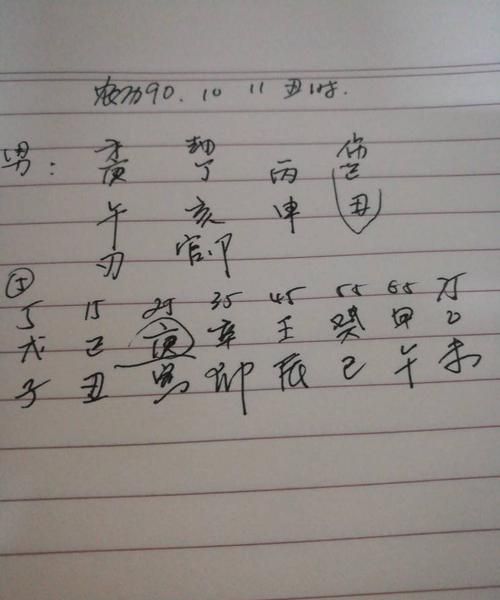 农历90.10 11 丑时.
男: 才 劫 伤
庚 丁 丙 己
午 亥 申 丑
刃 官印
⑤
5 15 25 35 45 55 65 75
戊 己 庚 辛 壬 癸 甲 乙
子 丑 寅 卯 辰 巳 午 未